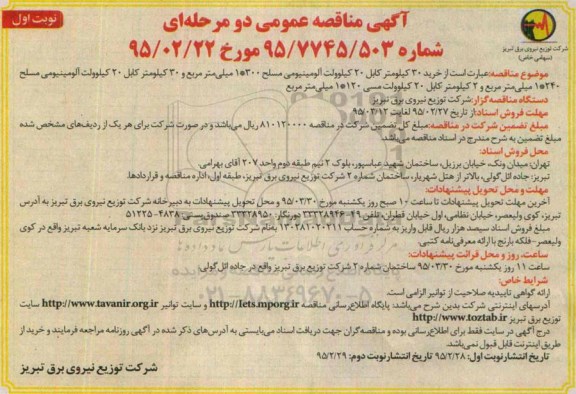 نوبت اول
آگهی مناقصه عمومی دو مرحله‌ای
شماره ۹۵/۷۷۴۵/۵۰۳ مورخ ۹۵/۰۲/۲۲
شرکت توزیع نیروی برق تبریز
(سهامی خاص)
موضوع مناقصه: عبارت است از خرید ۳۰ کیلومتر کابل ۲۰ کیلوولت آلومینیومی مسلح ۳۰۰*۱ میلی‌متر مربع و ۳۰ کیلومتر کابل ۲۰ کیلوولت آلومینیومی مسلح
۲۴۰*۱ میلی‌متر مربع و ۲ کیلومتر کابل ۲۰ کیلوولت مسی ۱۲۰*۱ میلی‌متر مربع
دستگاه مناقصه‌گزار: شرکت توزیع نیروی برق تبریز
مهلت فروش اسناد: از تاریخ ۹۵/۰۲/۲۷ لغایت ۹۵/۰۳/۱۲
مبلغ تضمین شرکت در مناقصه: مبلغ کل تضمین شرکت در مناقصه ۸۱۰۱۲۰۰۰۰ ریال می‌باشد و در صورت شرکت برای هر یک از ردیف‌های مشخص شده
مبلغ تضمین به شرح مندرج در اسناد مناقصه می‌باشد.
محل فروش اسناد:
تهران: میدان ونک، خیابان برزیل، ساختمان شهید عباسپور، بلوک ۲ نیم طبقه دوم واحد ۲۰۷ آقای بهرامی.
تبریز: جاده ائل گولی، بالاتر از هتل شهریار، ساختمان شماره ۲ شرکت توزیع نیروی برق تبریز، طبقه اول، اداره مناقصه و قراردادها.
مهلت و محل تحویل پیشنهادات:
آخرین مهلت تحویل پیشنهادات تا ساعت ۱۰ صبح روز یکشنبه مورخ ۹۵/۰۳/۳۰ و محل تحویل پیشنهادات به دبیرخانه شرکت توزیع نیروی برق تبریز به آدرس
تبریز، کوی ولیعصر، خیابان نظامی، اول خیابان قطران، تلفن ۴۹-۳۳۲۸۹۴۴۶ دورنگار: ۳۳۲۸۹۵۰ صندوق پستی ۴۸۳۸-۵۱۲۲۵
مبلغ فروش اسناد سیصد هزار ریال قابل واریز به شماره حساب بنام شرکت توزیع نیروی برق تبریز نزد بانک سرمایه شعبه تبریز واقع در کوی
ولیعصر- فلکه بارنج با ارائه معرفی‌نامه کتبی
ساعت، روز و محل قرائت پیشنهادات:
ساعت ۱۱ روز یکشنبه مورخ ۹۵/۰۳/۳۰ ساختمان شماره ۲ شرکت توزیع برق تبریز واقع در جاده ائل گولی.
شرایط خاص:
ارائه گواهی تاییدیه صلاحیت از توانیر الزامی است.
آدرسهای اینترنتی شرکت بدین شرح می‌باشد: پایگاه اطلاع‌رسانی مناقصه http://Iets.mporg.ir و سایت توانیر http://www.tavanir.org.ir سایت
توزیع برق تبریز http://www.toztab.ir
درج آگهی در سایت فقط برای اطلاع‌رسانی بوده و مناقصه‌گران جهت دریافت اسناد می‌بایستی به آدرس‌های ذکر شده در آگهی روزنامه مراجعه فرمایند و خرید از
طریق اینترنت قابل قبول نمی‌باشد.
تاریخ انتشار نوبت اول: ۹۵/۲/۲۸ تاریخ انتشار نوبت دوم: ۹۵/۲/۲۹
شرکت توزیع نیروی برق تبریز
۰۲۱-۸۸۳۴۹۶۷۰-۵